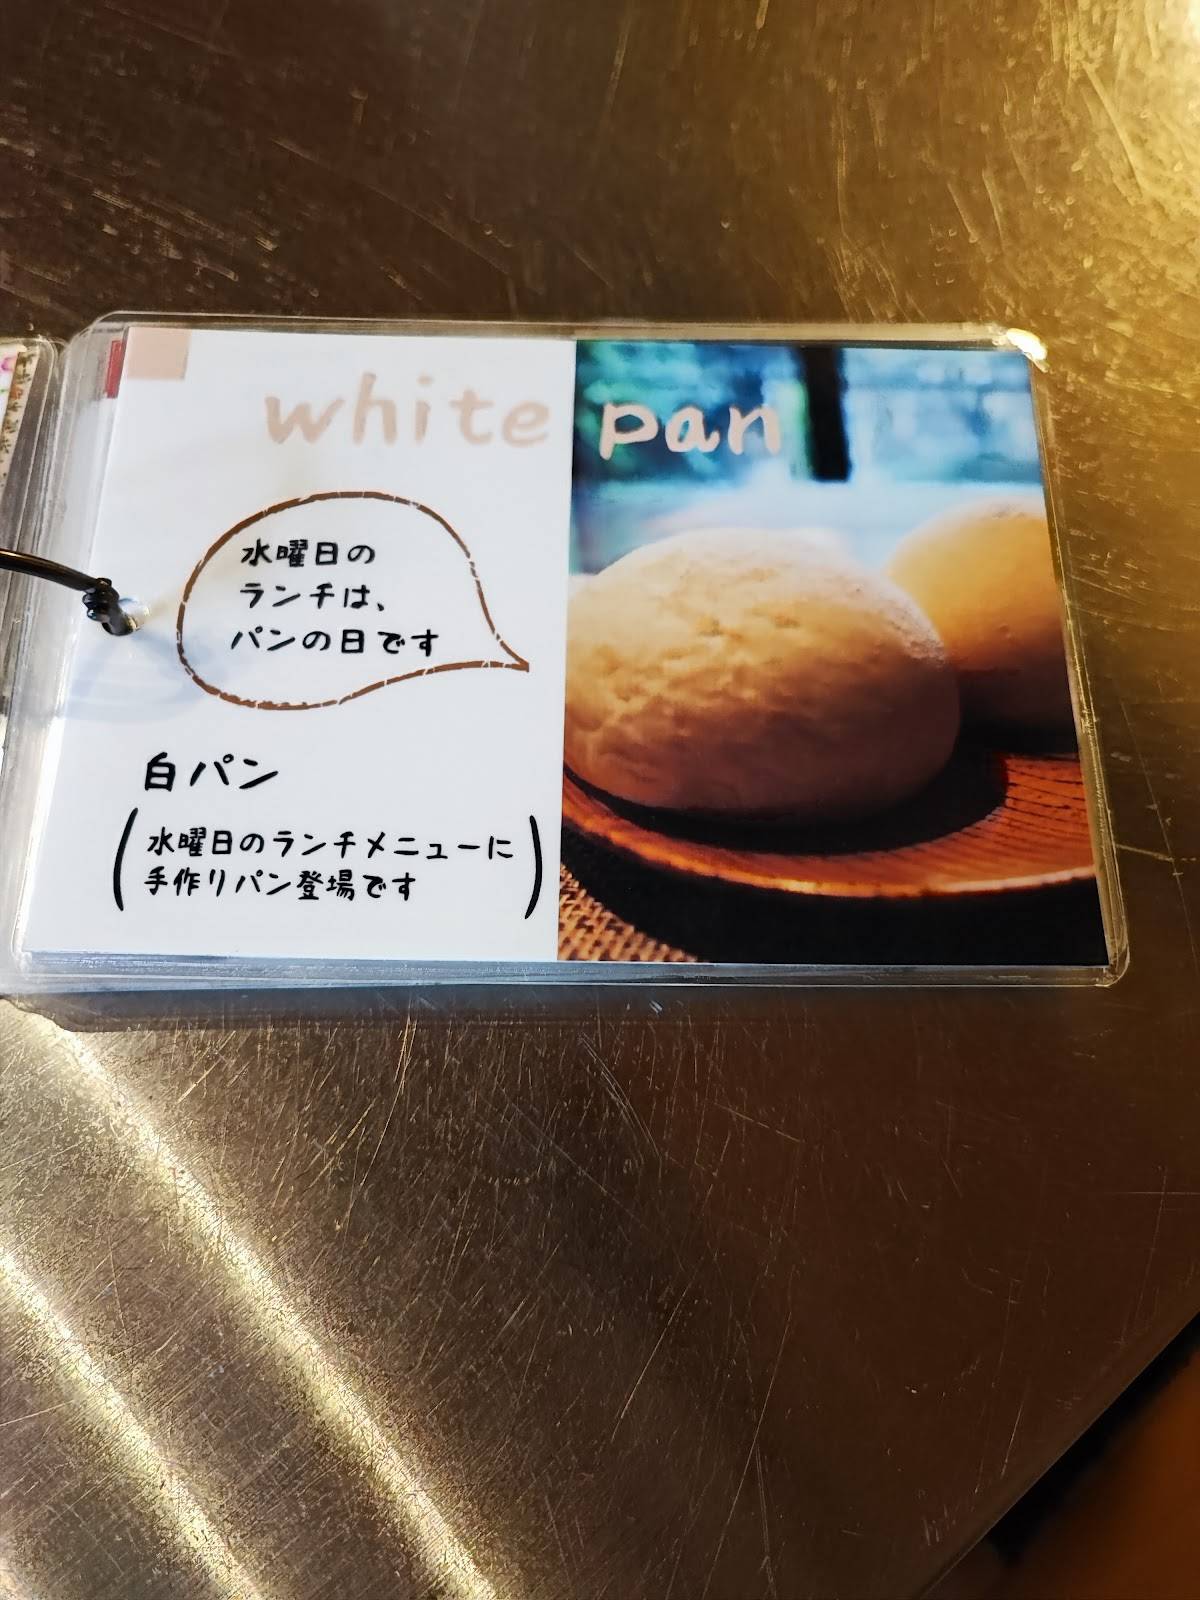 white pan
水曜日の
ランチは、
パンの日です
白パン
(水曜日のランチメニューに
手作りパン登場です)